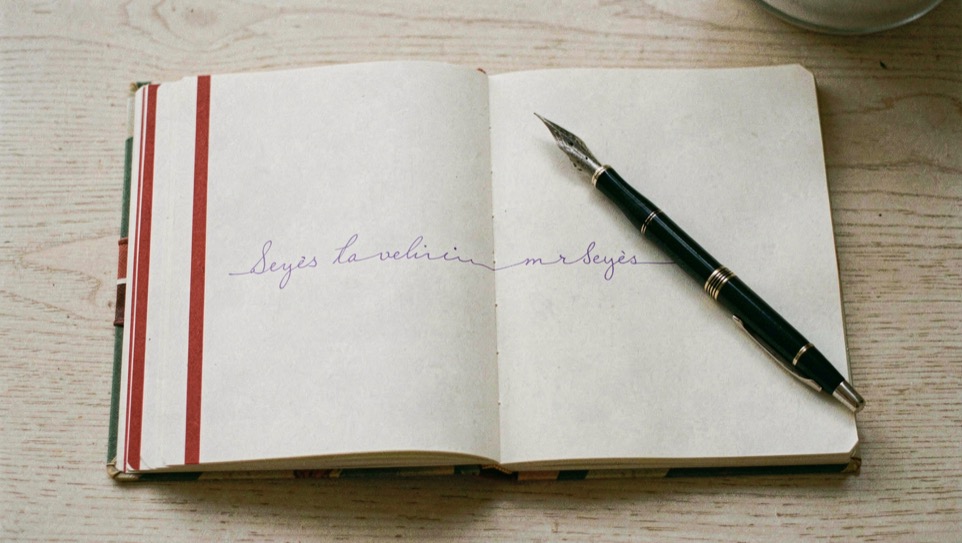 Seyès la velirin m r Seyès